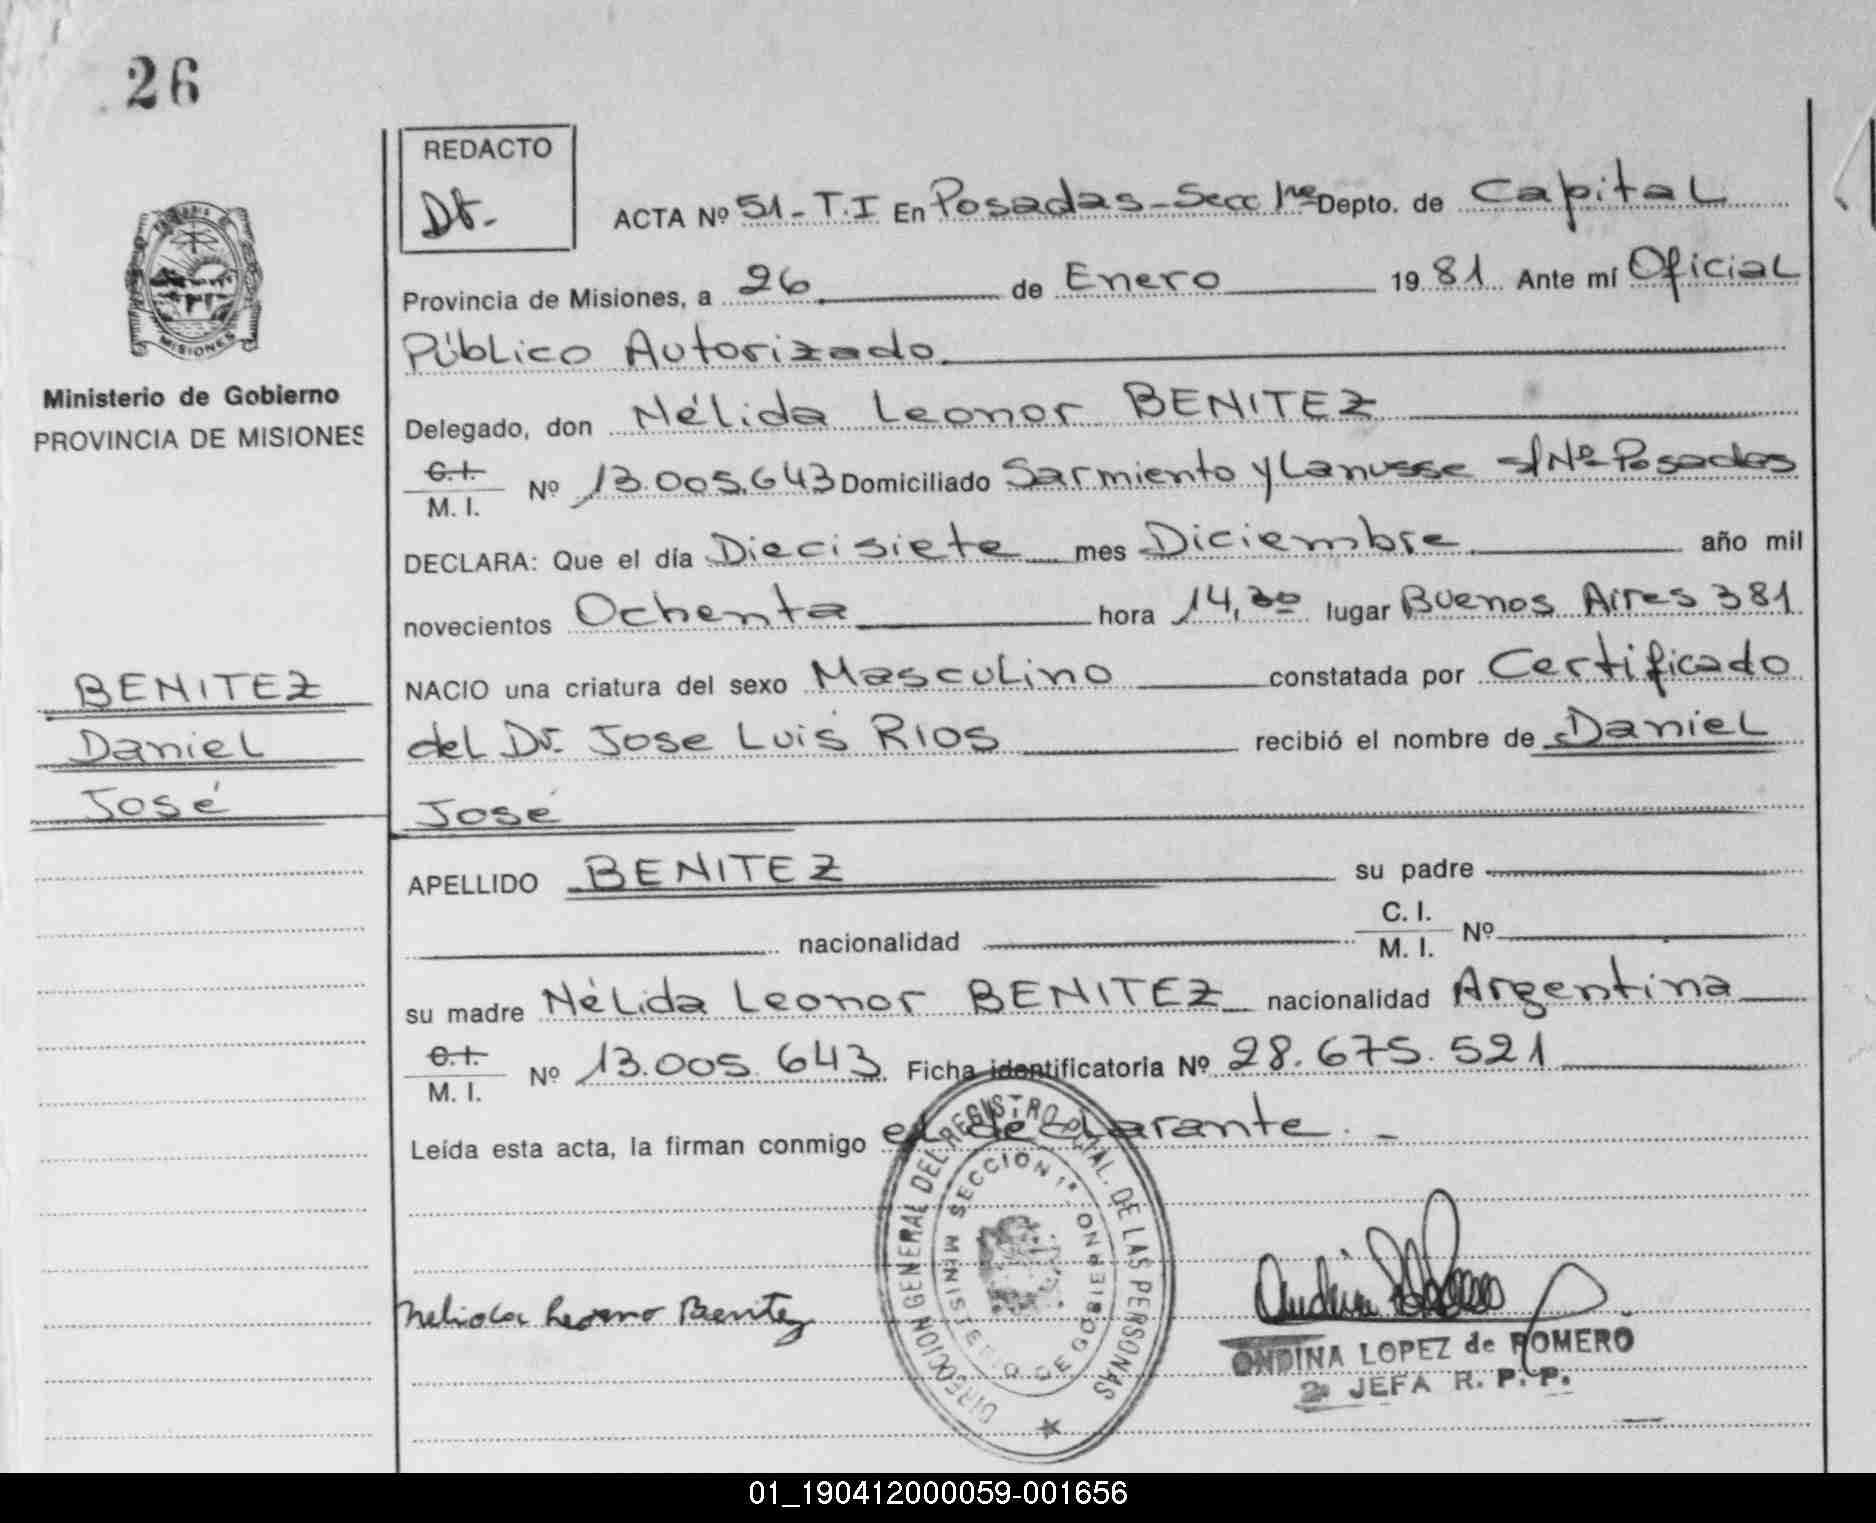 26
REDACTO
Dt.
ACTA Nº 51 - T.I En Posadas - Secc 1ra Depto. de Capital
Provincia de Misiones, a 26 de Enero 1981 Ante mí Oficial
Público Autorizado
Ministerio de Gobierno
PROVINCIA DE MISIONES
MISIONES
Delegado, don Nélida Leonor BENITEZ
C.I. M. I. Nº 13.005.643 Domiciliado Sarmiento y Lanusse s/Nº Posadas
DECLARA: Que el día Diecisiete mes Diciembre año mil
novecientos Ochenta hora 14,30 lugar Buenos Aires 381
NACIO una criatura del sexo Masculino constatada por Certificado
del Dr. Jose Luis RIOS recibió el nombre de Daniel
José
BENITEZ
Daniel
José
APELLIDO BENITEZ su padre
nacionalidad C. I. M. I. Nº
su madre Nélida Leonor BENITEZ nacionalidad Argentina
C.I. M. I. Nº 13.005.643 Ficha identificatoria Nº 28.675.521
Leída esta acta, la firman conmigo el declarante. -
DIRECCION GENERAL DEL REGISTRO PCIAL. DE LAS PERSONAS
SECCION 1ª
MINISTERIO DE GOBIERNO
Benitez
ONDINA LOPEZ de ROMERO
2ª JEFA R. P. P.
01_190412000059-001656